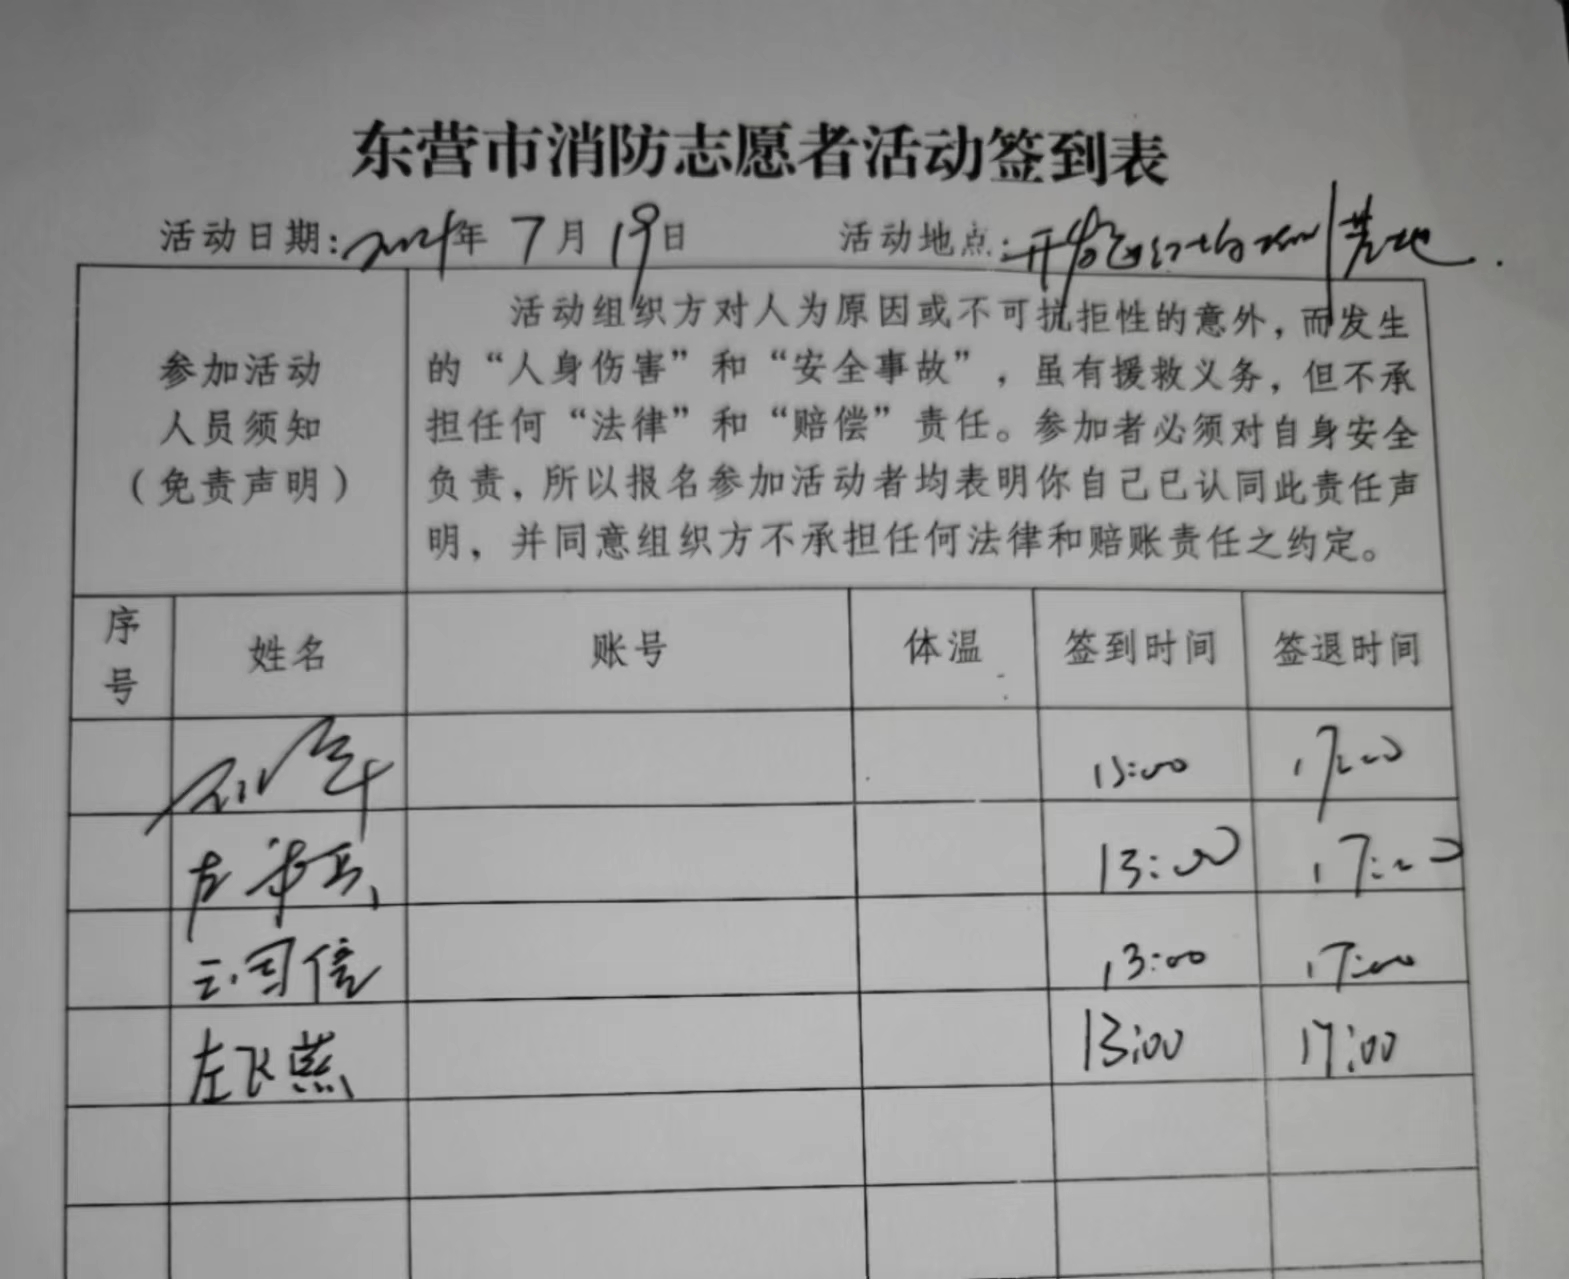 东营市消防志愿者活动签到表
活动日期:2024年 7月 19日 活动地点:开发区 训基地.
参加活动
人员须知
(免责声明)
活动组织方对人为原因或不可抗拒性的意外,而发生
的“人身伤害”和“安全事故”,虽有援救义务,但不承
担任何“法律”和“赔偿”责任。参加者必须对自身安全
负责,所以报名参加活动者均表明你自己已认同此责任声
明,并同意组织方不承担任何法律和赔账责任之约定。
序号 姓名 账号 体温 签到时间 签退时间
13:00 17:00
13:00 17:00
13:00 17:00
左飞燕 13:00 17:00